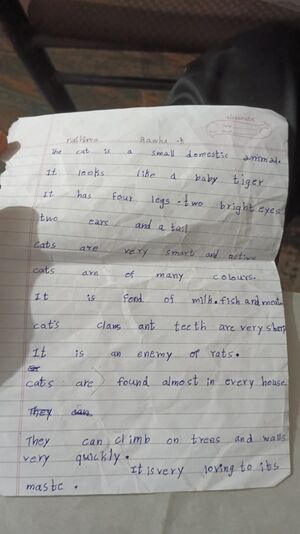 The cat is a small domestic animal.
It looks like a baby tiger
It has four legs. two bright eyes
two ears and a tail
cats are very smart and active
cats are of many colours.
It is fond of milk. fish and meat
cat's claws ant teeth are very sharp
It is an enemy of rats.
cats are found almost in every house
They can
They can climb on trees and walls
very quickly.
It is very loving to its
maste.